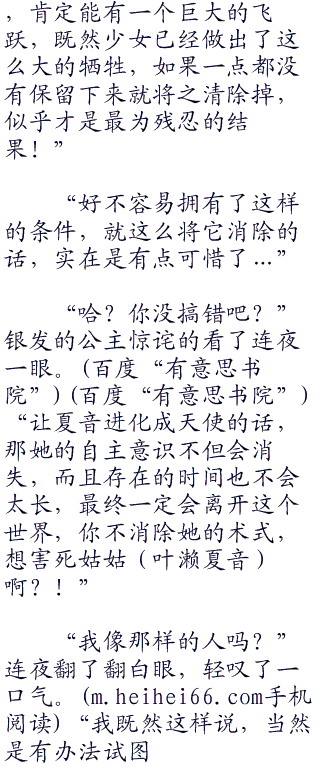 ，肯定能有一个巨大的飞
跃，既然少女已经做出了这
么大的牺牲，如果一点都没
有保留下来就将之清除掉，
似乎才是最为残忍的结
果！”
“好不容易拥有了这样
的条件，就这么将它消除的
话，实在是有点可惜了…”
“哈？你没搞错吧？”
银发的公主惊诧的看了连夜
一眼。(百度“有意思书
院”)(百度“有意思书院”)
“让夏音进化成天使的话，
那她的自主意识不但会消
失，而且存在的时间也不会
太长，最终一定会离开这个
世界，你不消除她的术式，
想害死姑姑（叶濑夏音）
啊？！”
“我像那样的人吗？”
连夜翻了翻白眼，轻叹了一
口气。(m.heihei66.com手机
阅读)“我既然这样说，当然
是有办法试图